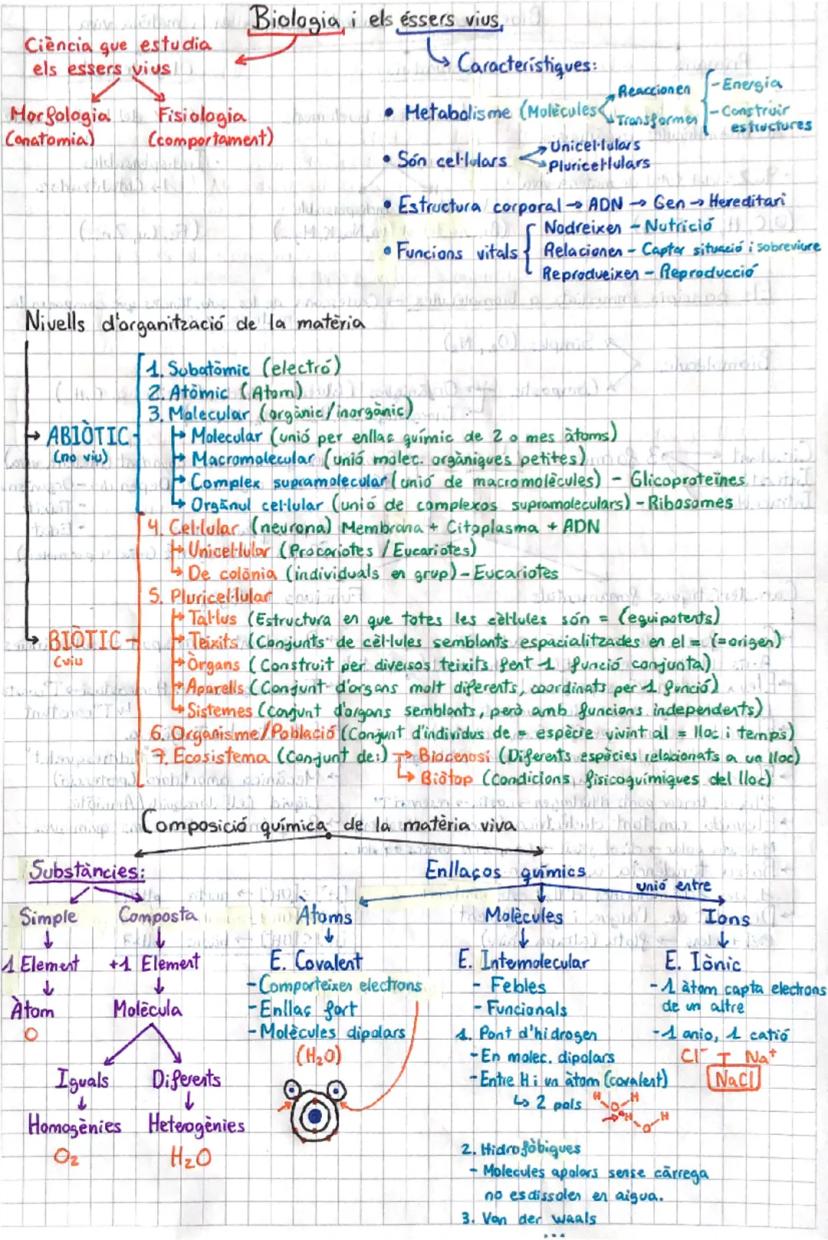 Biologia i els éssers vius
Ciència que estudia
els essers vius
Morfologia
(anatomia)
Fisiologia
(comportament)
Característiques:
• Metabolisme (Molècules
Reaccionen
Transformen
- Energia
- Construir
estructures
• Són cel·lulars
Unicel·lulars
Pluricel·lulars
• Estructura corporal → ADN → Gen → Hereditari
• Funcions vitals
Nodreixen – Nutrició
Relacionen – Captar situació i sobreviure
Reprodueixen – Reproducció
Nivells d'organització de la matèria
ABIÒTIC
(no viu)
1. Subatòmic (electró)
2. Atòmic (Atom)
3. Molecular (orgànic/inorgànic)
Molecular (unió per enllaç químic de 2 o mes àtoms)
Macromolecular (unió molec. orgàniques petites)
Complex supramolecular (unió de macromolècules) – Glicoproteïnes
Orgànul cel·lular (unió de complexos supramoleculars) – Ribosomes
BIÒTIC
(viu
4. Cel·lular (neurona) Membrana + Citoplasma + ADN
Unicel·lular (Procariotes / Eucariotes)
De colònia (individuals en grup) – Eucariotes
5. Pluricel·lular
Tal·lus (Estructura en que totes les cèl·lules són = (equipotents)
Teixits (Conjunts de cèl·lules semblants espacialitzades en el = (=origen)
Òrgans (Construit per diversos teixits fent 1 funció conjunta)
Aparells (Conjunt d'organs molt diferents, coordinats per 1 funció)
Sistemes (conjunt d'organs semblants, però amb funcions independents)
6. Organisme/Població (Conjunt d'individus de = espècie vivint al = lloc i temps)
7. Ecosistema (Conjunt de:) → Biocenosi (Diferents espècies relacionats a un lloc)
Biòtop (Condicions fisicoquímiques del lloc)
Composició química de la matèria viva
Substàncies:
Simple
1 Element
Àtom
O
Composta
+1 Element
Molècula
Iguals
Homogènies
O₂
Diferents
Heterogènies
H₂O
Enllaços químics
unió entre
Àtoms
E. Covalent
- Comporteixen electrons
- Enllaç fort
- Molècules dipolars
(H₂O)
Molècules
E. Intermolecular
- Febles
- Funcionals
1. Pont d'hidrogen
- En molec. dipolars
- Entre H i un àtom (covalent)
↳ 2 pols
H O H
H O H
2. Hidrofòbiques
- Molecules apolars sense càrrega
no es dissolen en aigua.
3. Van der waals
...
Ions
E. Iònic
- 1 àtom capta electrons
de un altre
- 1 anio, 1 catió
Cl⁻ Na⁺
NaCl